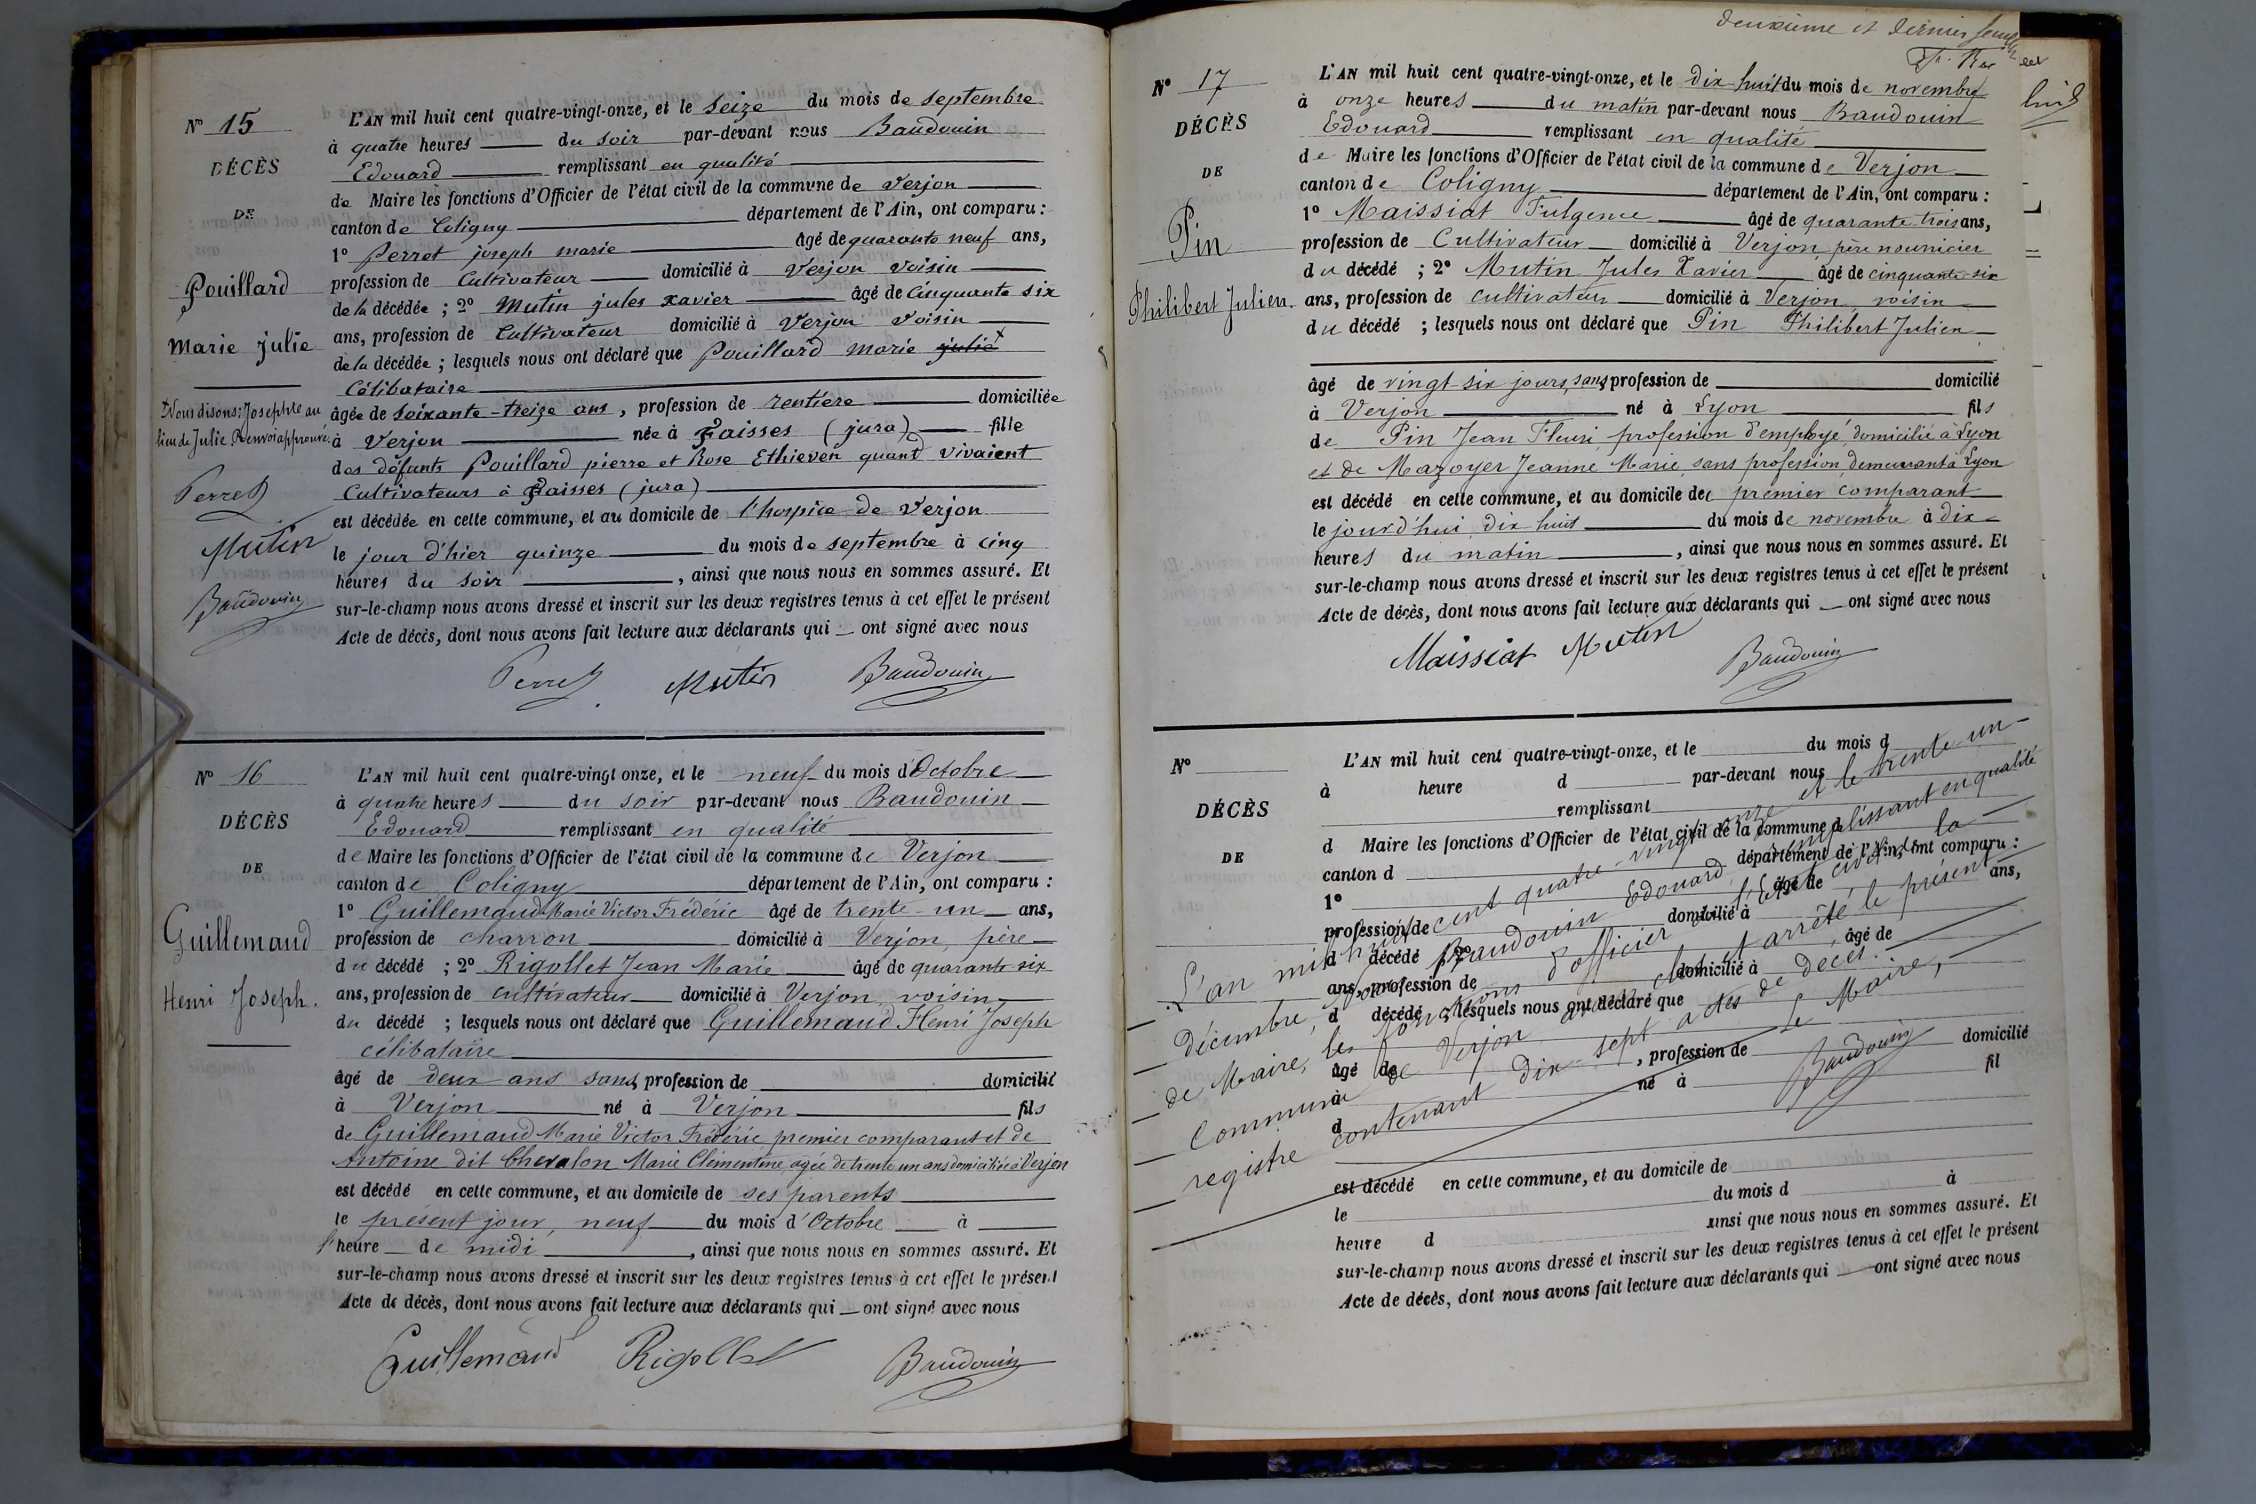 N° 15
DÉCÈS
DE
Pouillard
Marie Julie
Nous disons: Josephte au
lieu de Julie Renvoi approuvé.
Perret
Mutin
Baudouin
L'AN mil huit cent quatre-vingt-onze, et le seize du mois de septembre
à quatre heures du soir par-devant nous Baudouin
Edouard remplissant en qualité
de Maire les fonctions d'Officier de l'état civil de la commune de Verjon
canton de Coligny département de l'Ain, ont comparu :
1° Perret joseph marie âgé de quarante neuf ans,
profession de Cultivateur domicilié à Verjon voisin
de la décédée ; 2° Mutin jules xavier âgé de Cinquante six
ans, profession de Cultivateur domicilié à Verjon voisin
de la décédée ; lesquels nous ont déclaré que Pouillard marie julie
Célibataire
âgée de soixante-treize ans, profession de rentière domiciliée
à Verjon née à Faisses (jura) fille
des défunts Pouillard pierre et Rose Ethieven quand vivaient
Cultivateurs à Faisses (jura)
est décédée en cette commune, et au domicile de l'hospice de Verjon
le jour d'hier quinze du mois de septembre à cinq
heures du soir, ainsi que nous nous en sommes assuré. Et
sur-le-champ nous avons dressé et inscrit sur les deux registres tenus à cet effet le présent
Acte de décès, dont nous avons fait lecture aux déclarants qui ont signé avec nous
Perret Mutin Baudouin
N° 16
DÉCÈS
DE
Guillemaud
Henri Joseph.
L'AN mil huit cent quatre-vingt onze, et le neuf du mois d'Octobre
à quatre heures du soir par-devant nous Baudouin
Edouard remplissant en qualité
de Maire les fonctions d'Officier de l'état civil de la commune de Verjon
canton de Coligny département de l'Ain, ont comparu :
1° Guillemaud Marie Victor Frédéric âgé de trente-un ans,
profession de charron domicilié à Verjon, père
du décédé ; 2° Rigollet Jean Marie âgé de quarante six
ans, profession de cultivateur domicilié à Verjon voisin
du décédé ; lesquels nous ont déclaré que Guillemaud Henri Joseph
célibataire
âgé de deux ans sans profession de domicilié
à Verjon né à Verjon fils
de Guillemaud Marie Victor Frédéric premier comparant et de
Antoine dit Chevalon Marie Clémentine agée de trente un ans domiciliée à Verjon
est décédé en cette commune, et au domicile de ses parents
le présent jour, neuf du mois d'Octobre à
l'heure de midi, ainsi que nous nous en sommes assuré. Et
sur-le-champ nous avons dressé et inscrit sur les deux registres tenus à cet effet le présent
Acte de décès, dont nous avons fait lecture aux déclarants qui ont signé avec nous
Guillemaud Rigollet Baudouin
deuxième et dernier feuillet
huit
N° 17
DÉCÈS
DE
Pin
Philibert Julien.
L'AN mil huit cent quatre-vingt-onze, et le dix-huit du mois de novembre
à onze heures du matin par-devant nous Baudouin
Edouard remplissant en qualité
de Maire les fonctions d'Officier de l'état civil de la commune de Verjon
canton de Coligny département de l'Ain, ont comparu :
1° Maissiat Fulgence âgé de quarante-trois ans,
profession de Cultivateur domicilié à Verjon, père nourricier
du décédé ; 2° Mutin Jules Xavier âgé de cinquante-six
ans, profession de cultivateur domicilié à Verjon voisin
du décédé ; lesquels nous ont déclaré que Pin Philibert Julien
âgé de vingt-six jours, sans profession de domicilié
à Verjon né à Lyon fils
de Pin Jean Fleuri profession d'employé, domicilié à Lyon
et de Mazoyer Jeanne Marie sans profession demeurant à Lyon
est décédé en cette commune, et au domicile du premier comparant
le jourd'hui dix huit du mois de novembre à dix
heures du matin, ainsi que nous nous en sommes assuré. Et
sur-le-champ nous avons dressé et inscrit sur les deux registres tenus à cet effet le présent
Acte de décès, dont nous avons fait lecture aux déclarants qui ont signé avec nous
Maissiat Mutin Baudouin
N°
DÉCÈS
DE
L'AN mil huit cent quatre-vingt-onze, et le du mois d
à heure d par-devant nous
remplissant
d Maire les fonctions d'Officier de l'état civil de la commune d
canton d département de l'Ain, ont comparu :
1° âgé de ans,
profession de domicilié à
d décédé ; 2° âgé de
ans, profession de domicilié à
d décédé ; lesquels nous ont déclaré que
âgé de , profession de domicilié
à né à fil
d
est décédé en cette commune, et au domicile de
le du mois d à
heure d ainsi que nous nous en sommes assuré. Et
sur-le-champ nous avons dressé et inscrit sur les deux registres tenus à cet effet le présent
Acte de décès, dont nous avons fait lecture aux déclarants qui ont signé avec nous
L'an mil huit cent quatre-vingt-onze et le trente-un
décembre, Nous Baudouin Edouard remplissant en qualité
de Maire, les fonctions d'officier de l'état civil de la
commune de Verjon avons clos et arrêté le présent
registre contenant dix-sept actes de décès.
Le Maire,
Baudouin